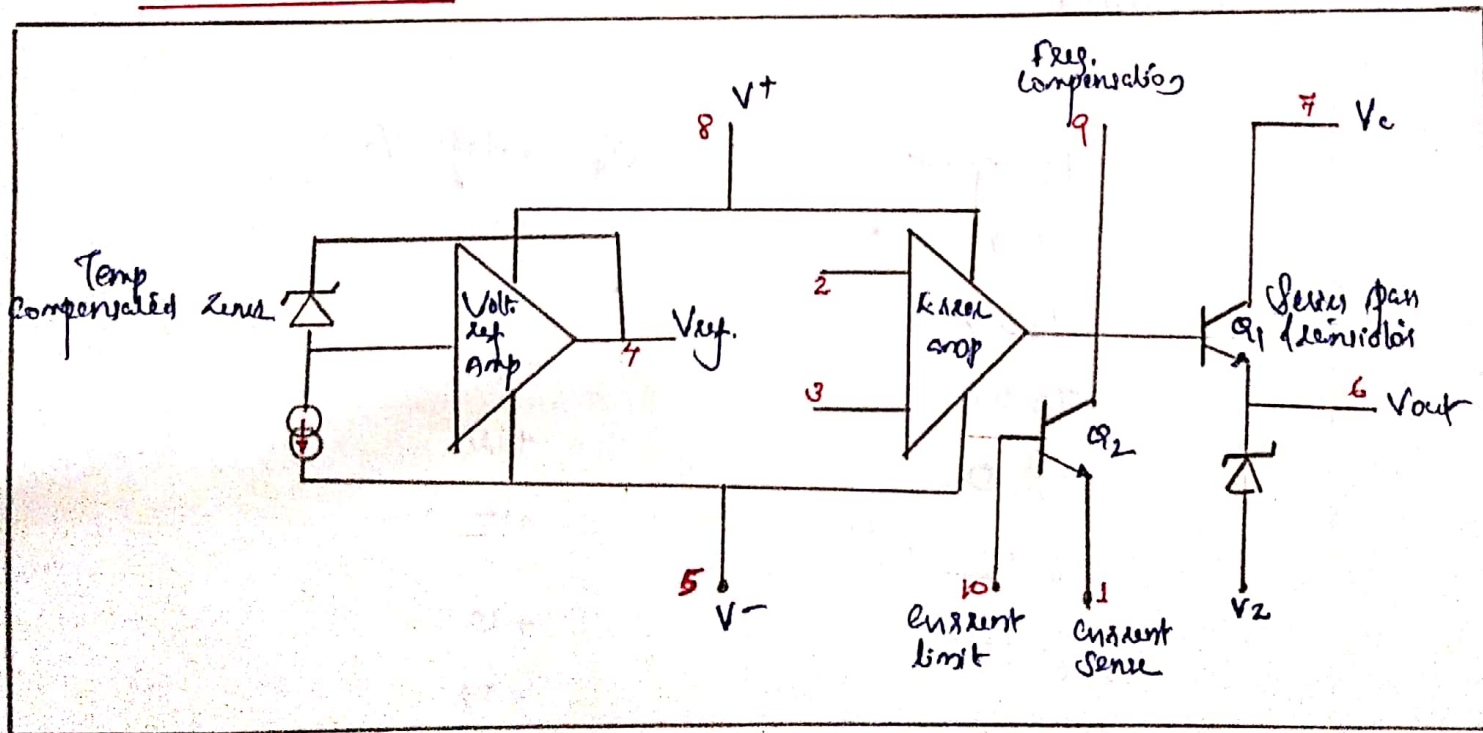 Freq.
Compensation
V+
8
9
7 Vc
Temp
Compensated Zener
Volt.
ref
Amp
4
Vref.
2
3
Error
amp
Series pass
Q1 transistor
6 Vout
Q2
5
V-
10
Current
limit
1
Current
Sense
VZ